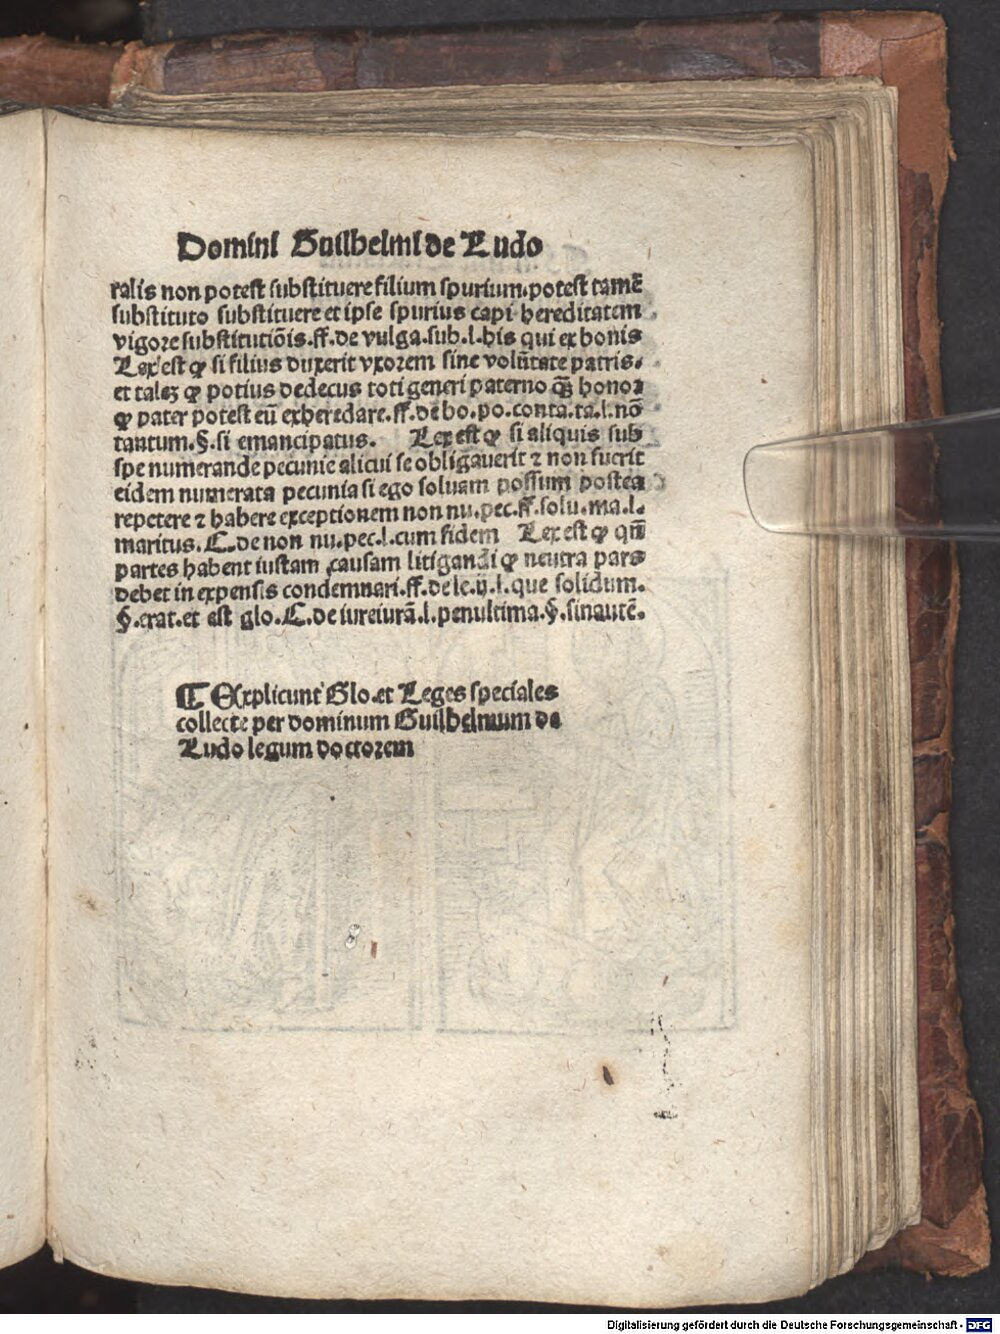 Domini Guilhelmi de Ludo
ralis non potest substituere filium spurium. potest tamē
substituto substituere et ipse spurius capi hereditatem
vigore substitutiōis. ff. de vulga. sub. l. his qui ex bonis
Lex est ꝙ si filius duxerit vxorem sine volūtate patris.
et talez ꝙ potius dedecus toti generi paterno ꝗ̄ȝ honor
ꝙ pater potest eū exheredare. ff. de bo. po. conta. ta. l. nō
tantum. §. si emancipatus. Lex est ꝙ si aliquis sub
spe numerande pecunie alicui se obligauerit ⁊ non fuerit
eidem numerata pecunia si ego soluam possum postea
repetere ⁊ habere exceptionem non nu. pec. ff. solu. ma. l.
maritus. C. de non nu. pec. l. cum fidem Lex est ꝙ qn̄
partes habent iustam causam litigandi ꝙ neutra pars
debet in expensis condemnari. ff. de le. ij. l. que solidum.
§. erat. et est glo. C. de iureiurā. l. penultima. §. sinautē.
¶ Explicunt Glo. et Leges speciales
collecte per dominum Guilhelmum de
Ludo legum doctorem
Digitalisierung gefördert durch die Deutsche Forschungsgemeinschaft - DFG